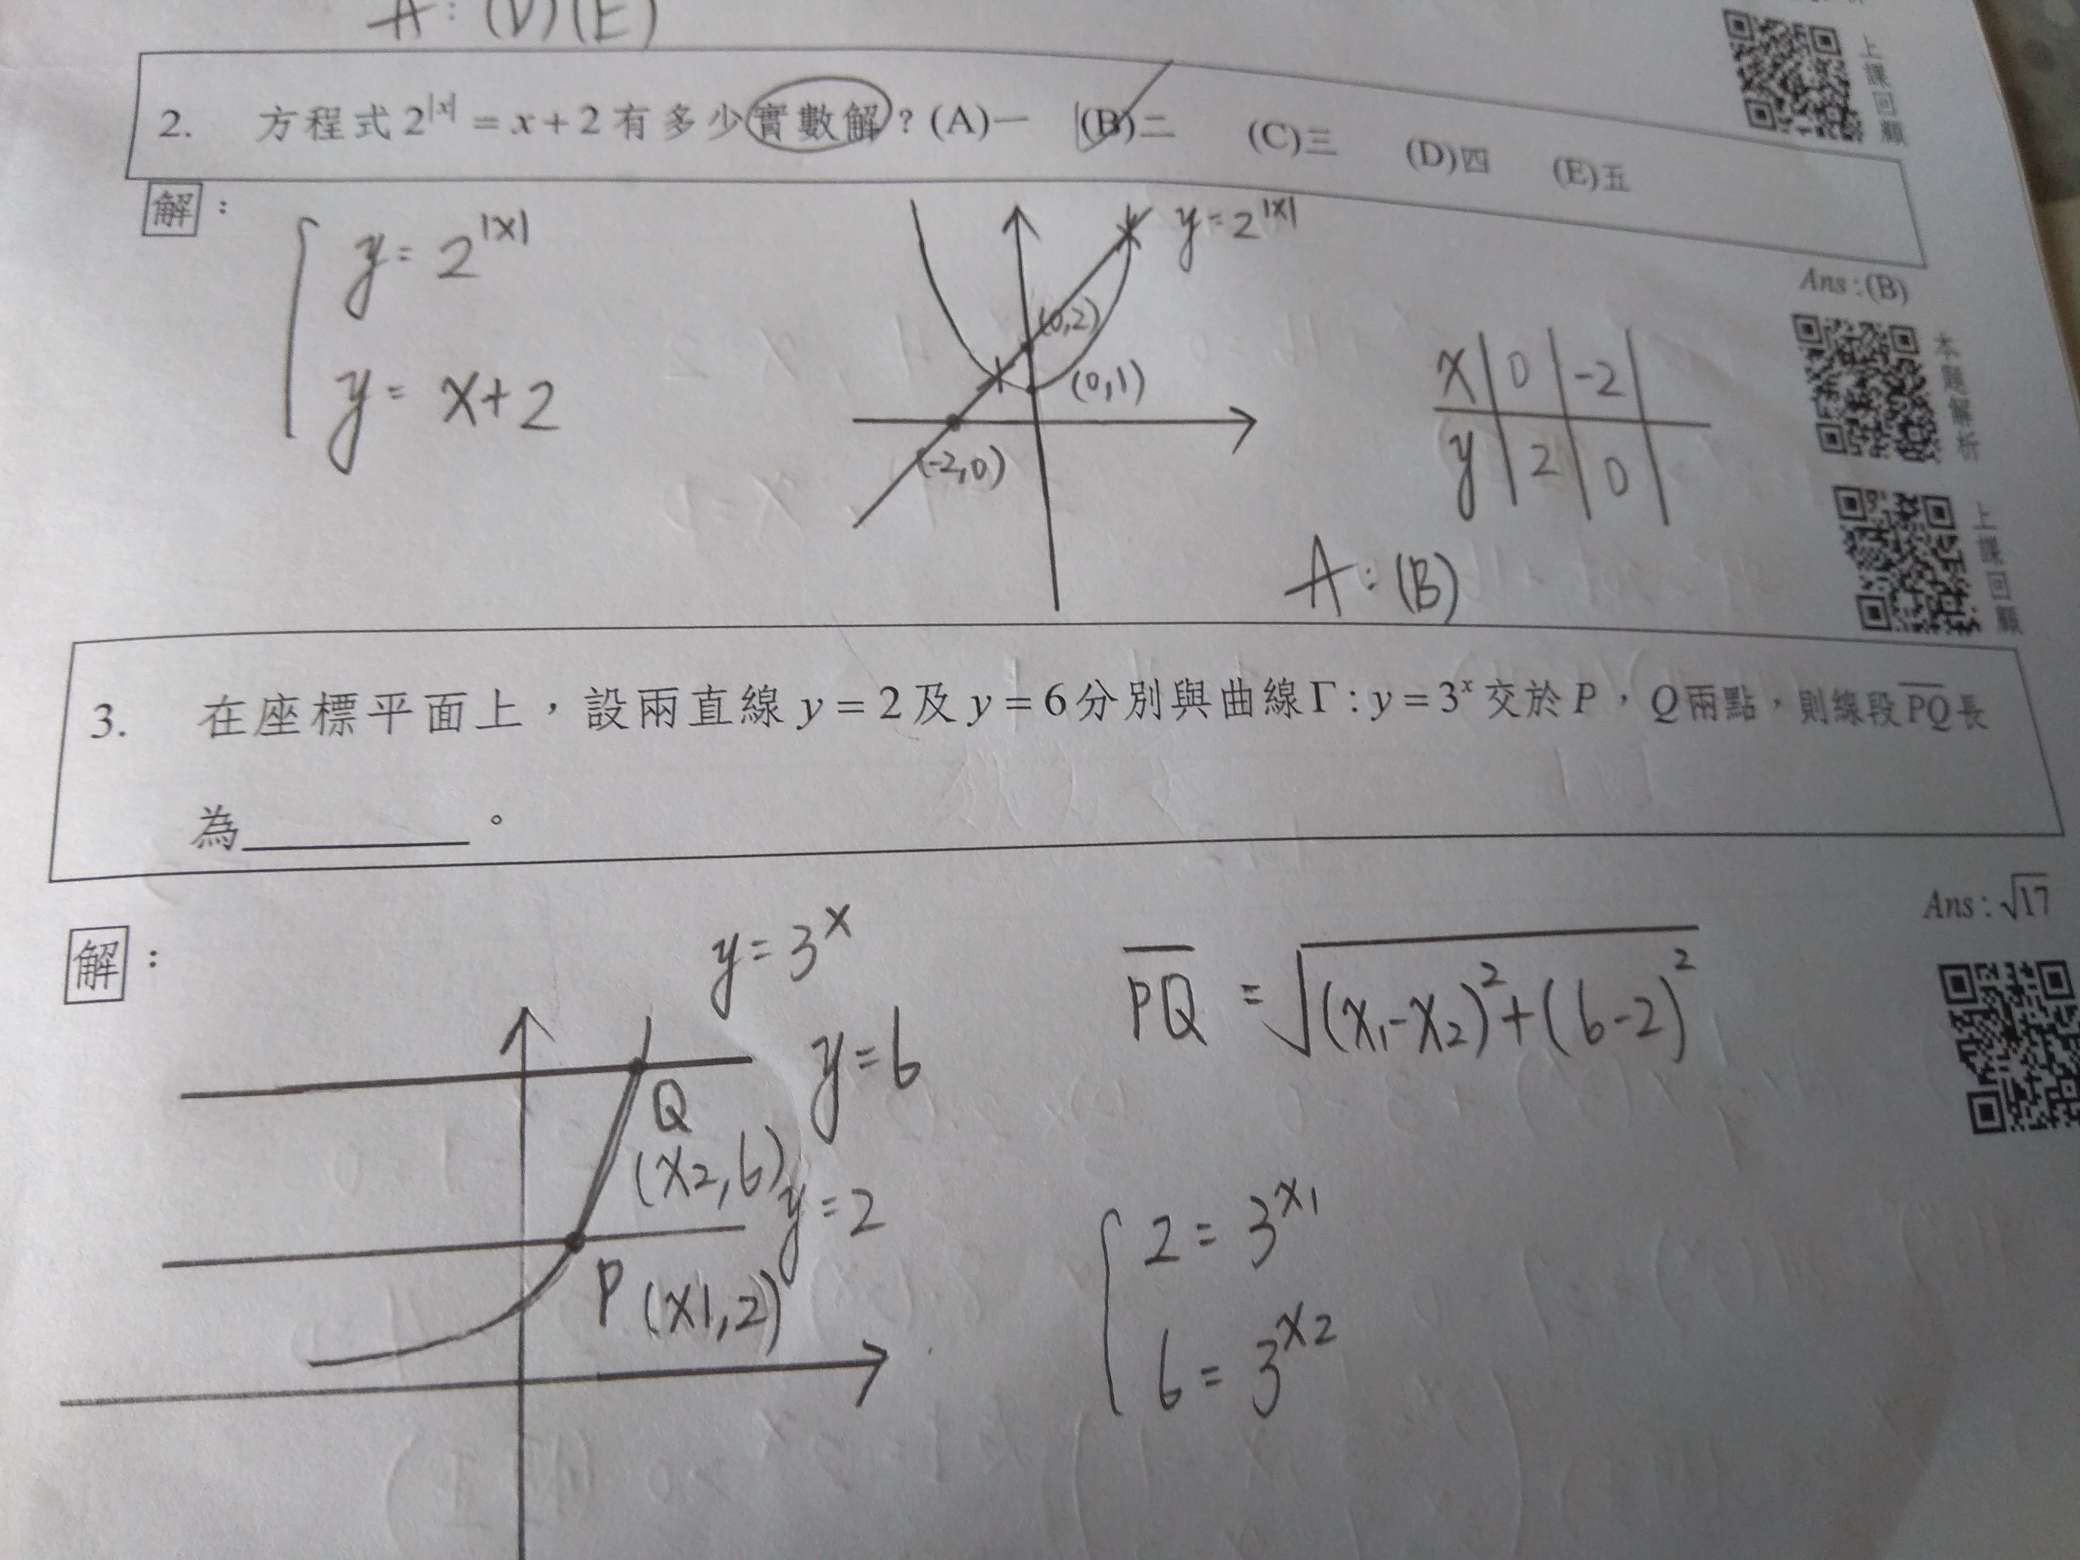 A：(D)(E)
上課回顧
2. 方程式 2^|x| = x+2 有多少實數解？(A)一 (B)二 (C)三 (D)四 (E)五
Ans:(B)
解：
y = 2^|x|
y = x+2
y = 2^|x|
(0,2)
(0,1)
(-2,0)
x 0 -2
y 2 0
A：(B)
本題解析
上課回顧
3. 在座標平面上，設兩直線 y = 2 及 y = 6 分別與曲線 Γ : y = 3^x 交於 P，Q 兩點，則線段 PQ 長
為________。
Ans : √17
解：
y = 3^x
y = 6
Q
(x2,6)
y = 2
P (x1,2)
PQ = √(x₁-x₂)²+(6-2)²
2 = 3^x1
6 = 3^x2